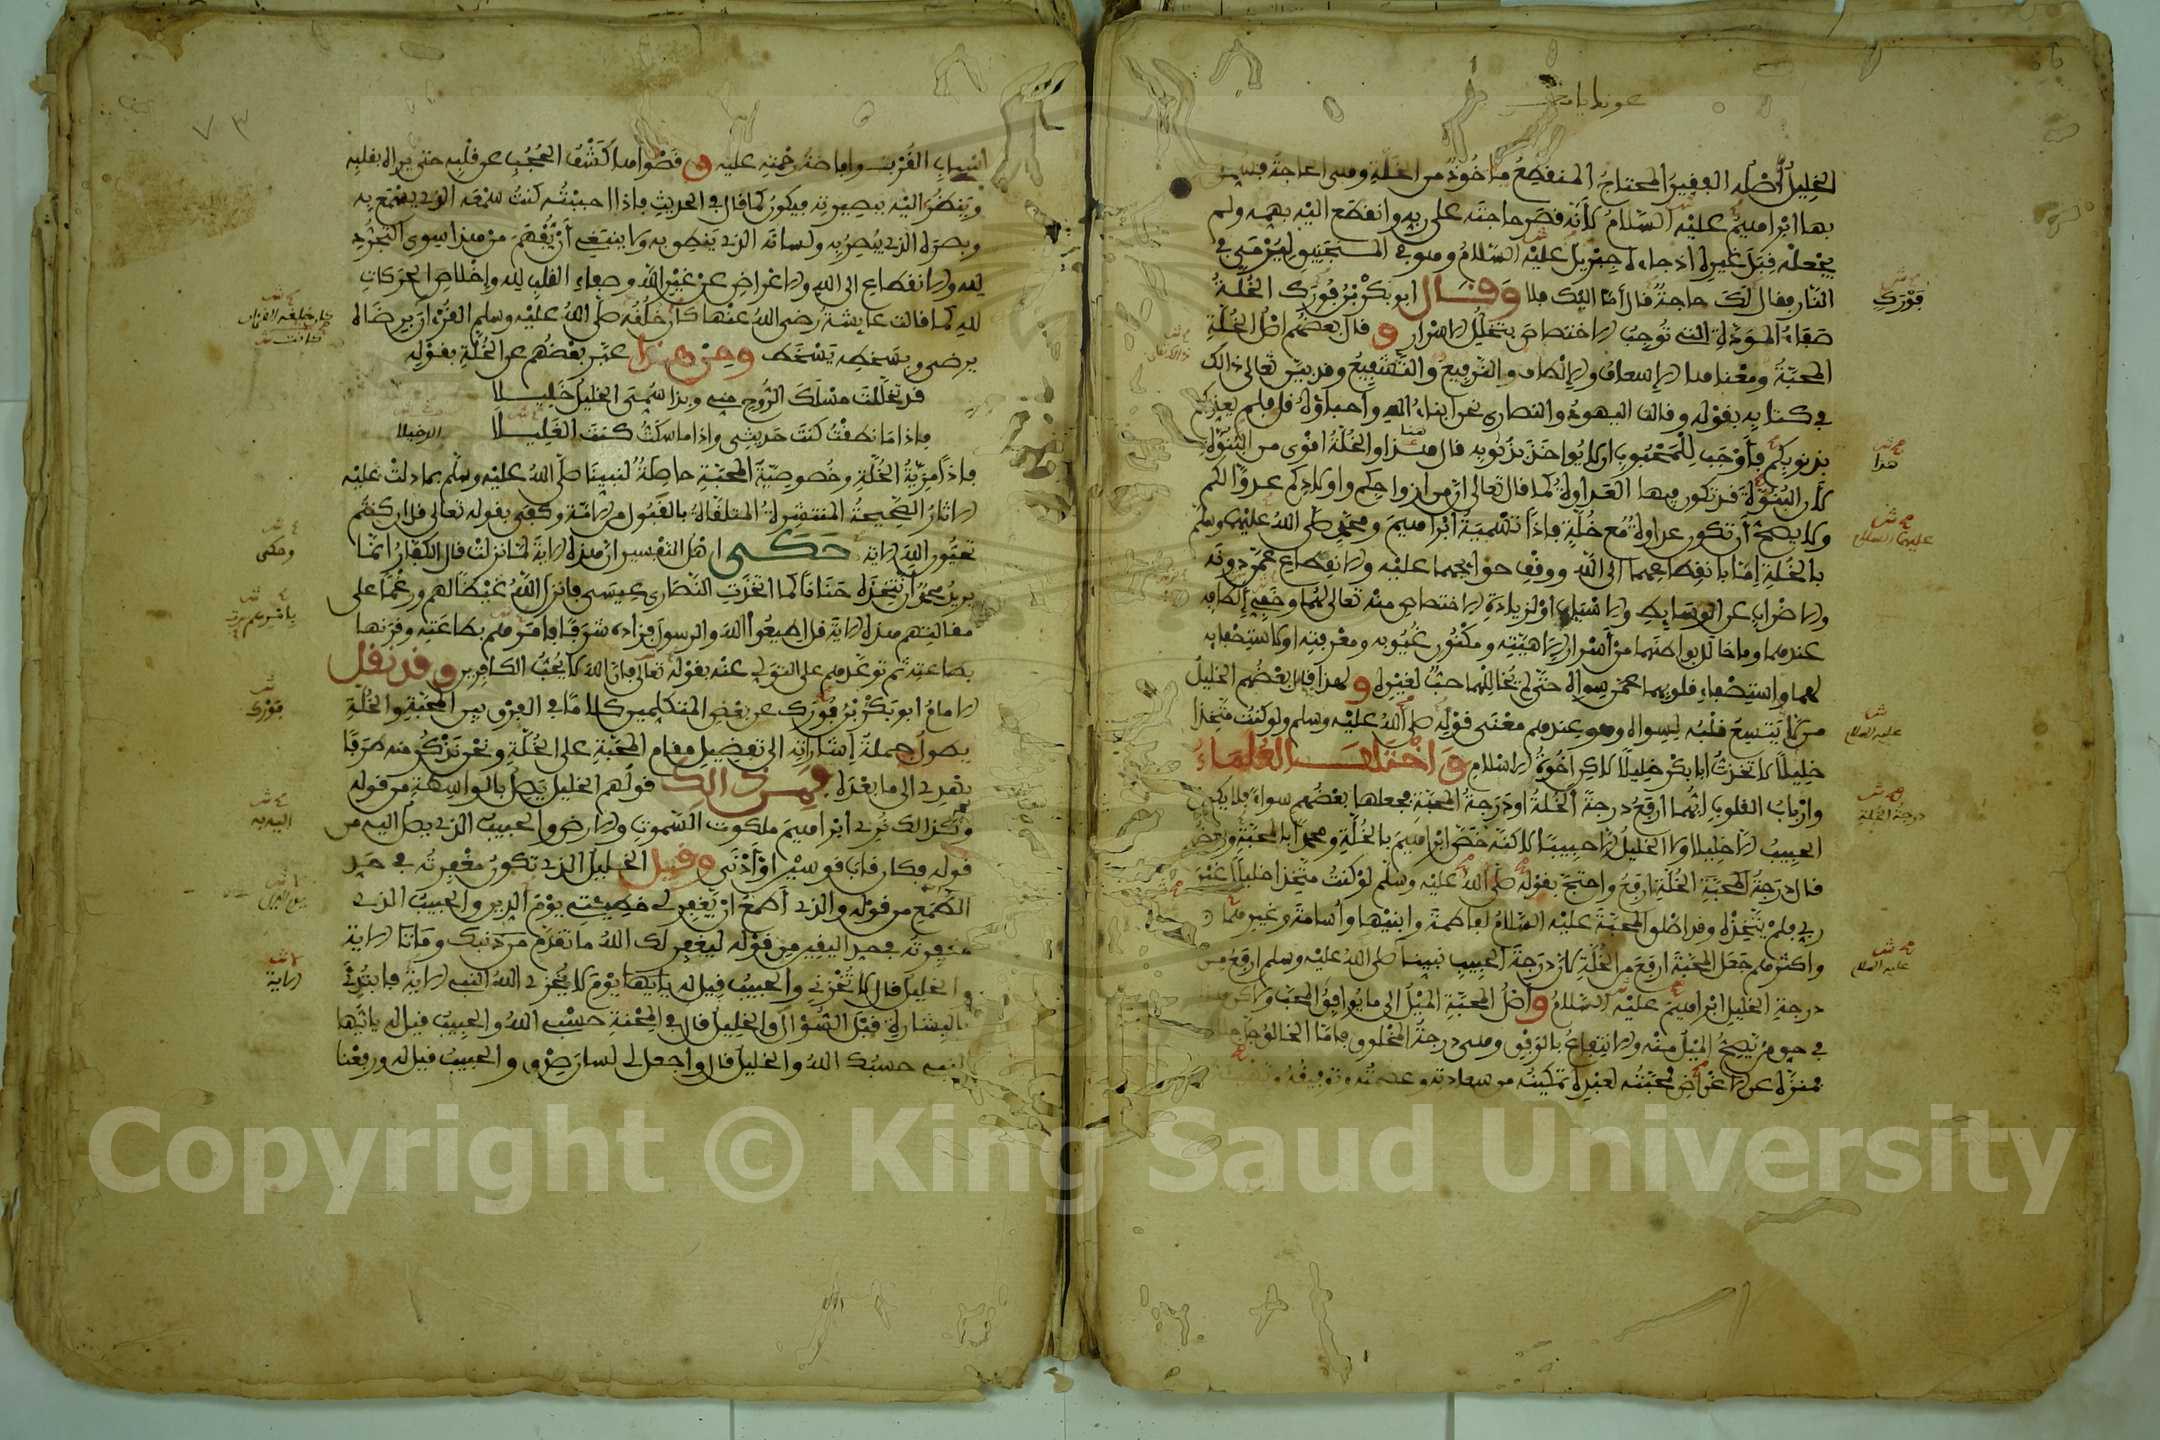 الخليل أصله الفقير المحتاج المنقطع مأخوذ من الخلة وهي الحاجة فسمي
بها ابراهيم عليه السلام لأنه قصر حاجته على ربه وانقطع اليه بهمه ولم
يجعله قبل غيره اذ جاءه جبريل عليه السلام وهو في المنجنيق ليرمى في
النار فقال لك حاجة قال أما اليك فلا وقال ابو بكر بن فورك الخلة
صفاء المودة التي توجب الاختصاص بتخلل الاسرار و قال بعضهم اصل الخلة
المحبة ومعناها الإسعاف والإلطاف والترفيع والتشفيع وقد بين تعالى ذالك
في كتابه بقوله وقالت اليهود والنصارى نحن ابناء الله واحباؤه قل فلم يعذبكم
بذنوبكم فأوجب للمحبوب ان لا يؤاخذ بذنوبه قال هذا والخلة اقوى من البنوة
لأن البنوة قد تكون فيها العداوة كما قال تعالى ان من ازواجكم واولادكم عدوا لكم
ولا يصح أن تكون عداوة مع خلة فاذا تسمية ابراهيم ومحمد صلى الله عليهما وسلم
بالخلة إما بانقطاعهما الى الله ووقف حوائجهما عليه والانقطاع عمن دونه
والاضراب عن الوسايط والاسباب او لزيادة الاختصاص منه تعالى لهما وخفي إلطافه
عندهما وما خالل بواطنهما من أسرار إلاهيته ومكنون غيوبه ومعرفته او لاستصفايه
لهما واستصفاء قلوبهما عمن سواه حتى لم يخاللهما حب لغيره و لهذا قال بعضهم الخليل
من لا يتسع قلبه لسواه وهو عندهم معنى قوله صلى الله عليه وسلم ولو كنت متخذا
خليلا لاتخذت أبا بكر خليلا لاكن اخوة الاسلام واختلف العلماء
وارباب القلوب ايهما ارفع درجة الخلة او درجة المحبة فجعلهما بعضهم سواء فلا يكون
الحبيب الا خليلا ولا الخليل الا حبيبا لاكنه خص ابراهيم بالخلة ومحمدا بالمحبة وبعضهم
قال درجة الخلة ارفع واحتج بقوله صلى الله عليه وسلم لو كنت متخذا خليلا غير
ربي فلم يتخذه وقد اطلق المحبة عليه السلام لفاطمة وابنيها وأسامة وغيرهما
واكثرهم جعل المحبة ارفع من الخلة لان درجة الحبيب نبينا صلى الله عليه وسلم ارفع من
درجة الخليل ابراهيم عليه السلام و أصل المحبة الميل الى ما يوافق المحب ولاكن هذا
في حق من يصح الميل منه والانتفاع بالوفق وهي درجة المخلوق فاما الخالق جل جلاله
فمنزه عن الاغراض فمحبته لعبده تمكينه من سعادته وعصمته وتوفيقه وتهيئة
فورك
هذا
عليهما السلام
عليه السلام
درجة الخلة
عليه السلام
٧٣
أسباب القرب وإفاضة رحمته عليه و قصواها كشف الحجب عن قلبه حتى يراه بقلبه
وينظر اليه ببصيرته فيكون كما قال في الحديث فاذا احببته كنت سمعه الذي يسمع به
وبصره الذي يبصر به ولسانه الذي ينطق به ولا ينبغي أن يفهم من هذا سوى التجرد
لله والانقطاع الى الله والاعراض عن غير الله وصفاء القلب لله وإخلاص الحركات
لله كما قالت عايشة رضي الله عنها كان خلقه صلى الله عليه وسلم القرءان برضاه
يرضى وبسخطه يسخط ومن هذا عبر بعضهم عن الخلة بقوله
قد تخللت مسلك الروح مني وبذا سمي الخليل خليلا
فاذا ما نطقت كنت حديثي واذا ما سكت كنت الغليلا
فاذا مزية الخلة وخصوصية المحبة حاصلة لنبينا صلى الله عليه وسلم بما دلت عليه
الاثار الصحيحة المنتشرة المتلقاة بالقبول من الامة وكفى بقوله تعالى قل ان كنتم
تحبون الله الاية حكى اهل التفسير ان هذه الاية لما نزلت قال الكفار انما
يريد محمد أن نتخذه حنانا كما اتخذت النصارى عيسى فانزل الله غيظا لهم ورغما على
مقالتهم هذه الاية قل اطيعوا الله والرسول فزاده شرفا بامرهم بطاعته وقرنها
بطاعته ثم توعدهم على التولي عنه بقوله تعالى فان الله لا يحب الكافرين وقد نقل
الامام ابو بكر بن فورك عن بعض المتكلمين كلاما في الفرق بين المحبة والخلة
يطول جملة إشاراته الى تفضيل مقام المحبة على الخلة ونحن نذكر منه طرفا
يهدي الى ما بعده فمن ذالك قولهم الخليل يصل بالواسطة من قوله
وكذالك نري ابراهيم ملكوت السموت والارض والحبيب الذي يصل اليه من
قوله فكان قاب قوسين او أدنى وقيل الخليل الذي تكون مغفرته في حد
الطمع من قوله والذي أطمع ان يغفر لي خطيئتي يوم الدين والحبيب الذي
مغفرته في حد اليقين من قوله ليغفر لك الله ما تقدم من ذنبك وما تأخر الاية
والخليل قال لا تخزني والحبيب قيل له يوم لا يخزي الله النبي الاية فابتدئ
بالبشارة قبل السؤال والخليل قال في المحنة حسبي الله والحبيب قيل له يا أيها
النبي حسبك الله والخليل قال واجعل لي لسان صدق والحبيب قيل له ورفعنا
وحكى
فورك
اليه به
الاية
Copyright © King Saud University